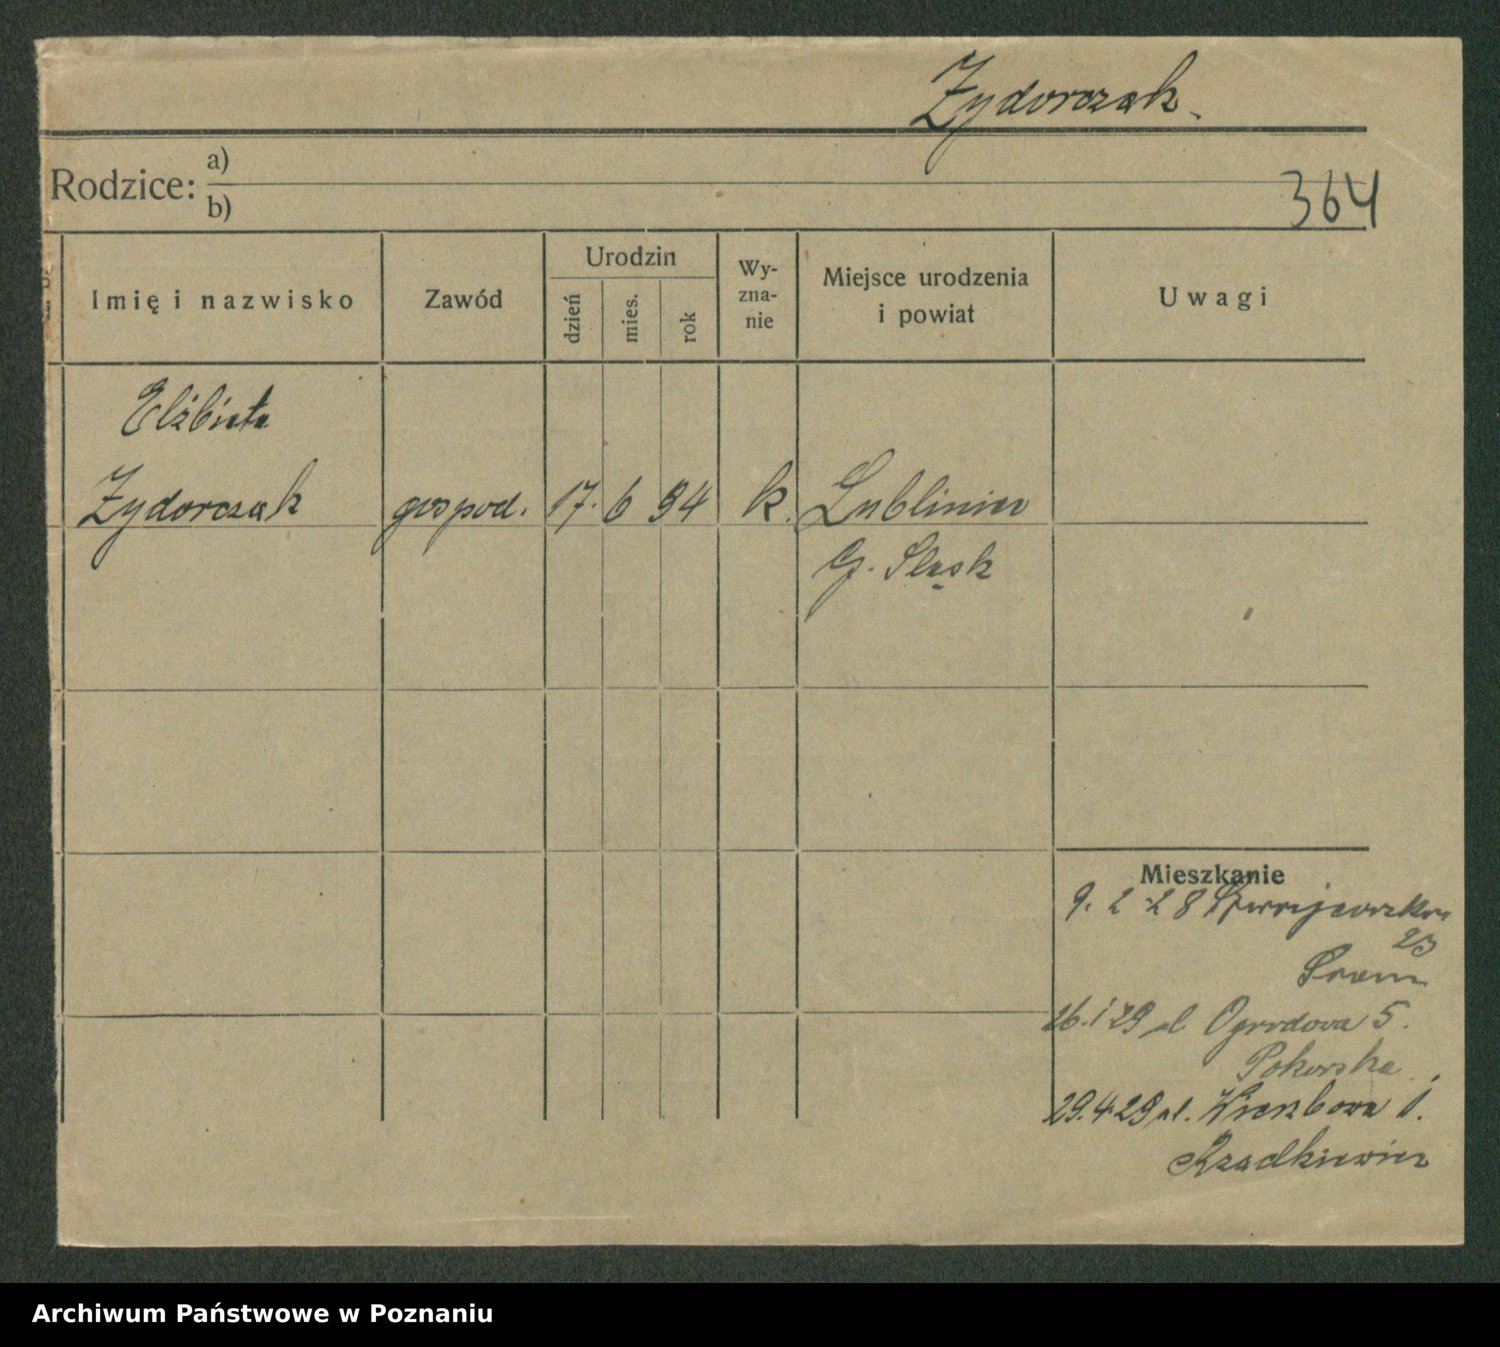 Zydorczak.
Rodzice: a)
b)
364
Imię i nazwisko
Zawód
Urodzin
dzień
mies.
rok
Wy-
zna-
nie
Miejsce urodzenia
i powiat
Uwagi
Elżbieta
Zydorczak gospod. 17. 6 94 k. Lubliniec
G. Śląsk
Mieszkanie
9. 2 28
23
Śrem
26. 1 29 ul. Ogrodowa 5.
Pokorska
29. 4 29 ul. Wierzbowa 1.
Rządkiewicz
Archiwum Państwowe w Poznaniu